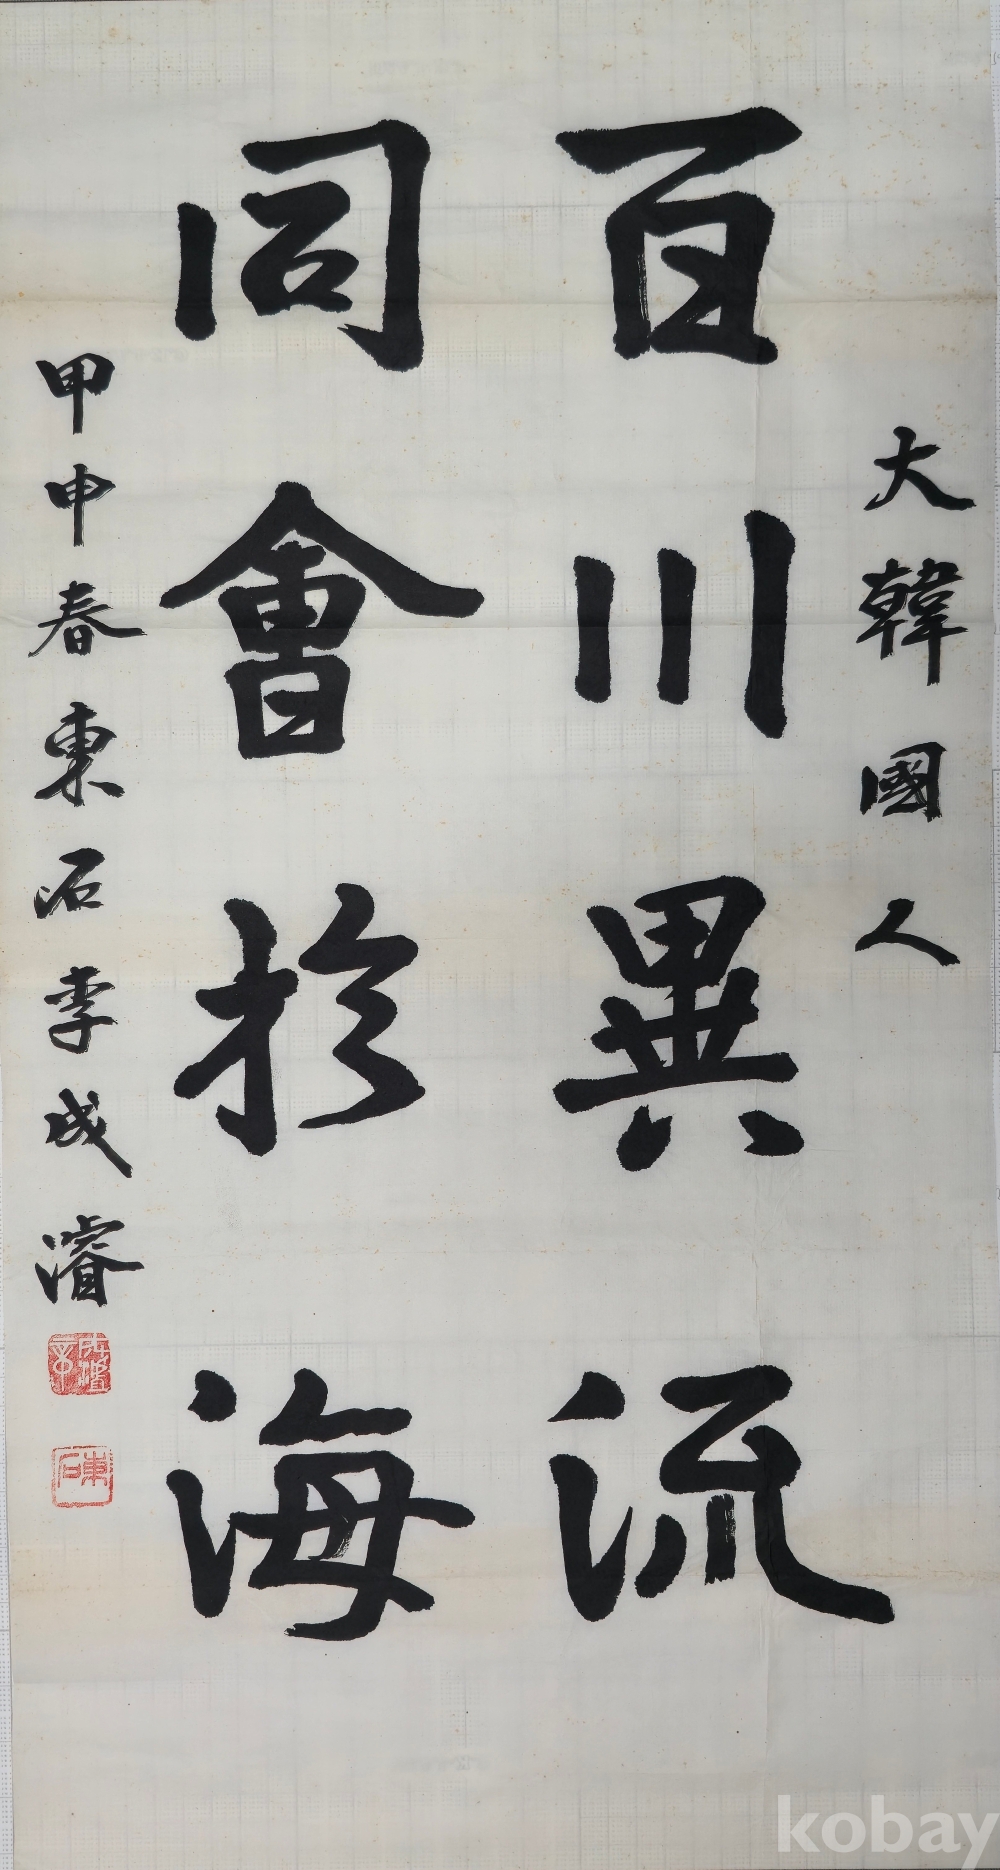 大韓國人
百川異流
同會於海
甲申春東石李成濬
東石
kobay